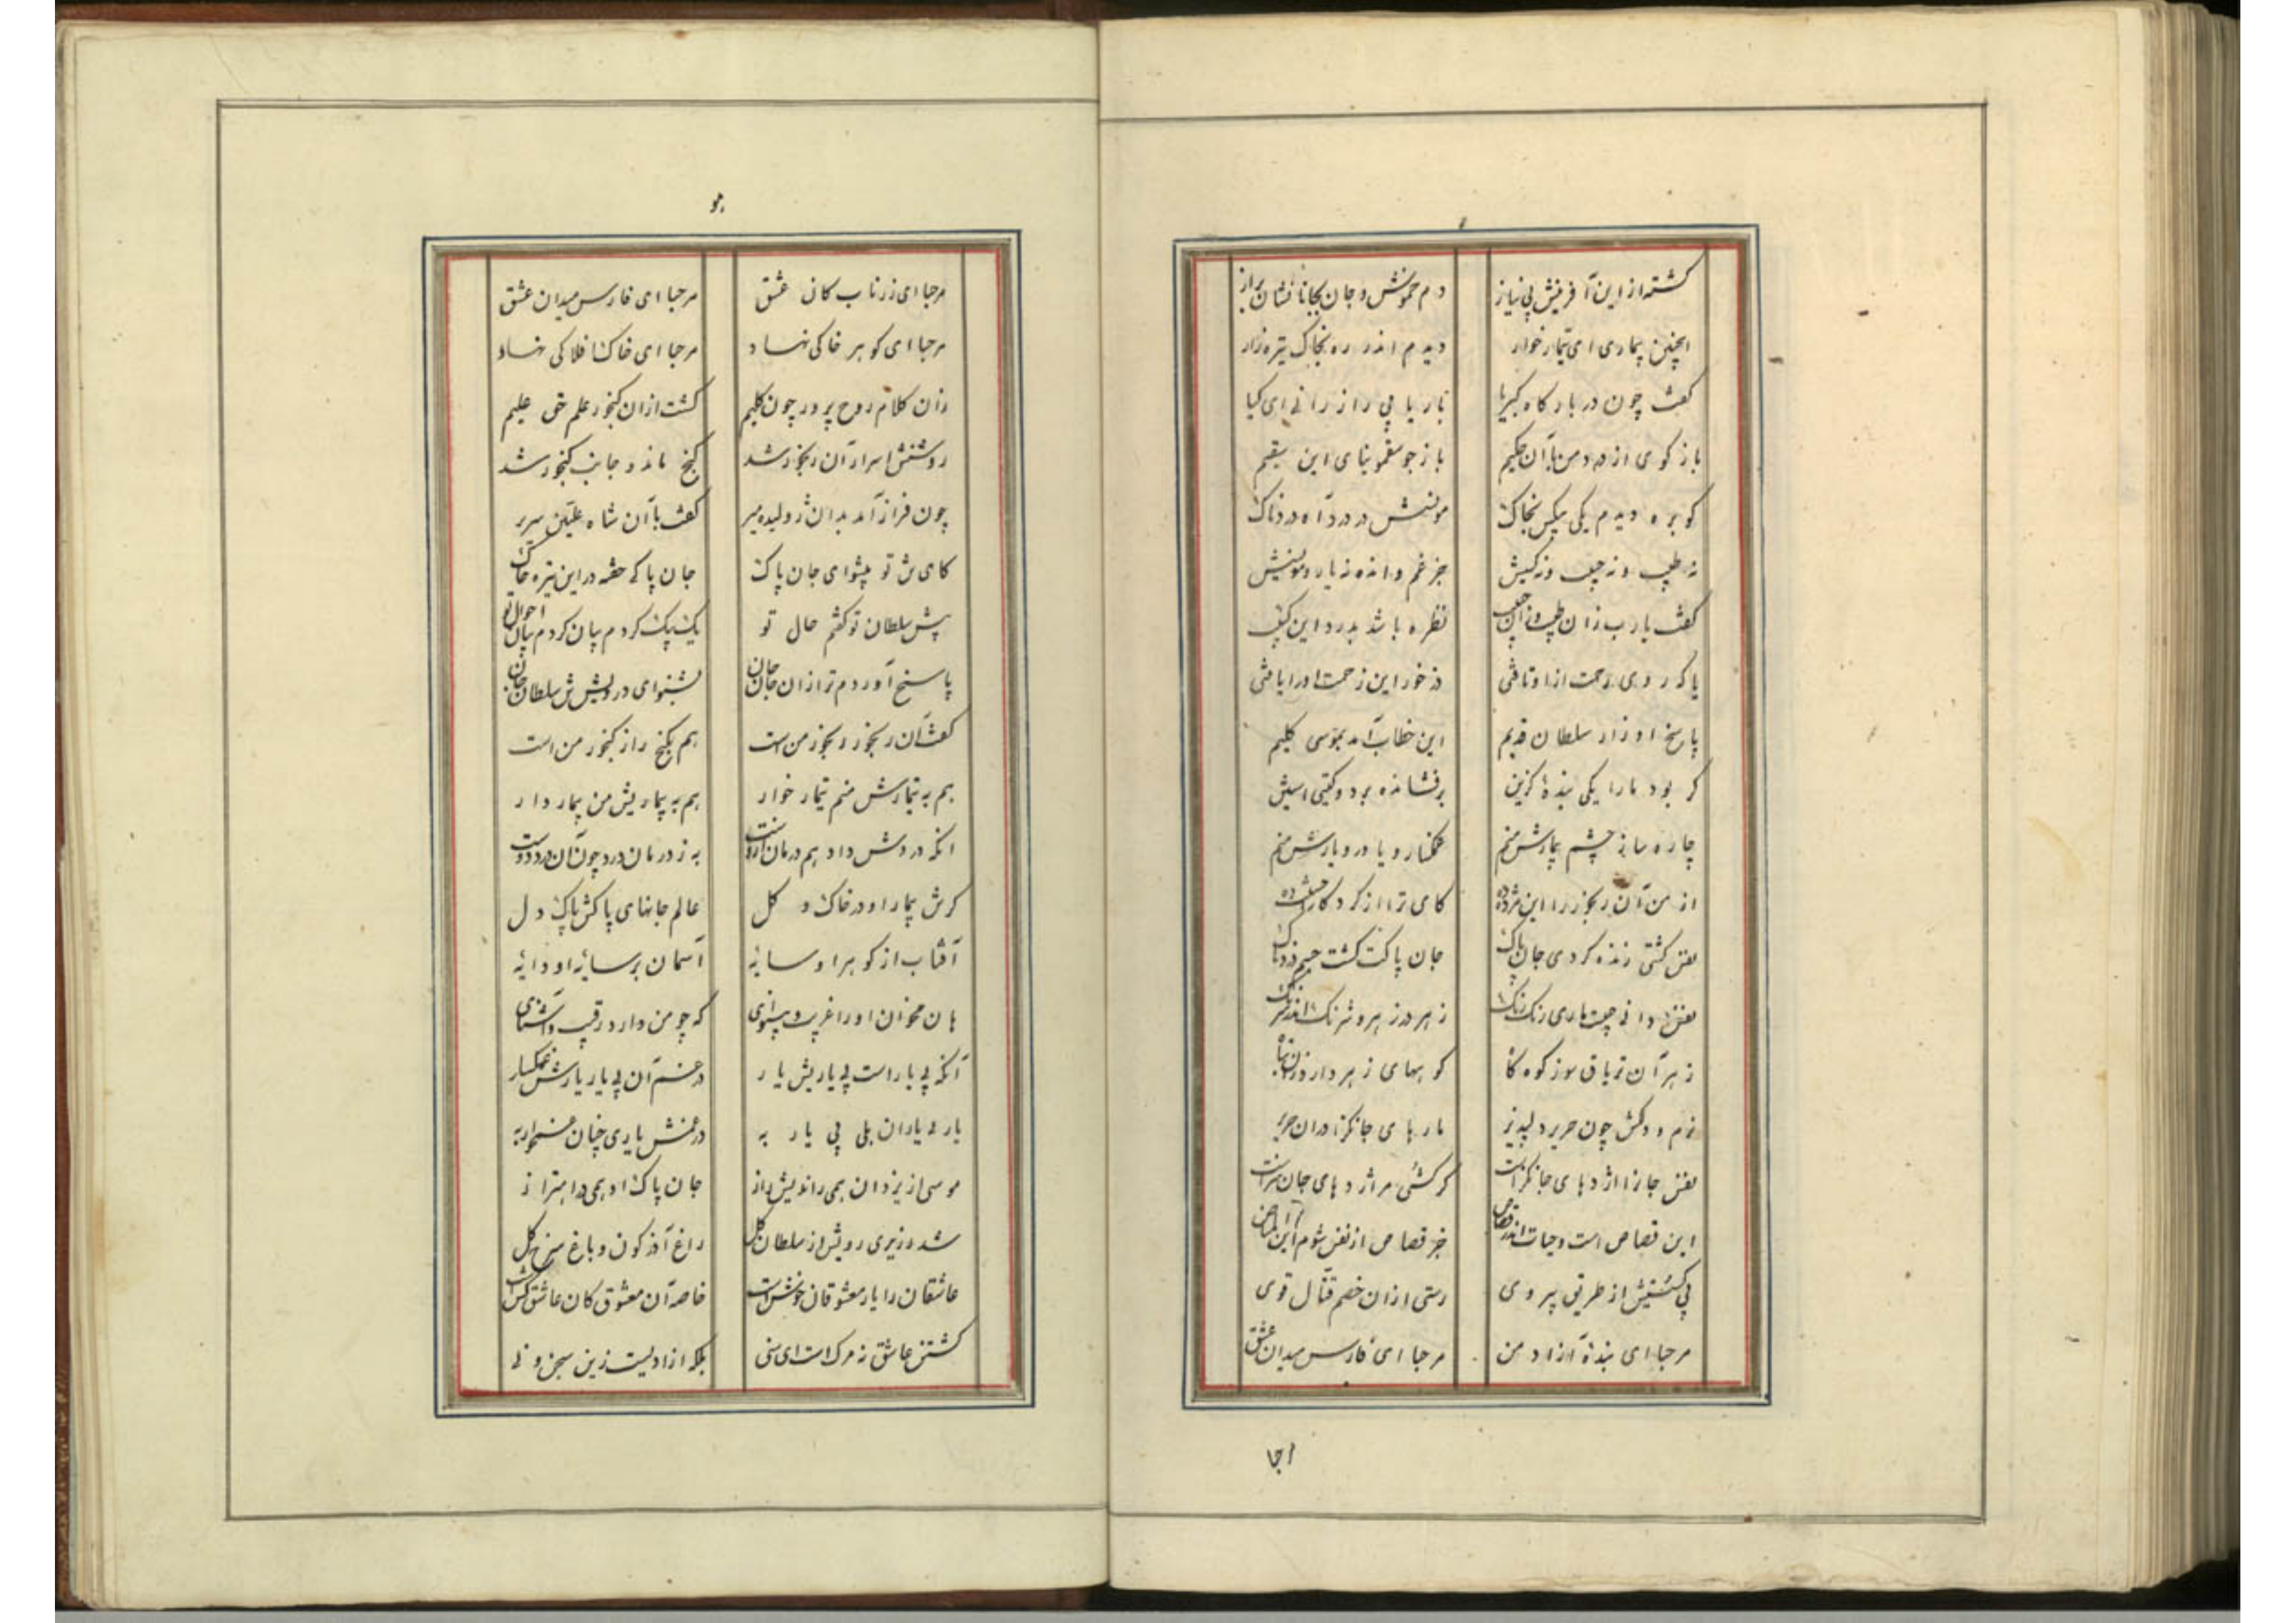 گشته از این آفرینش بی نیاز
دم خموش و جان بجانانشان براز
اینچنین بیماری ای تیمار خوار
دیدم اندر ره بخاک تیره زار
گفت چون در بارگاه کبریا
بار یابی راز رانی ای کیا
باز گوی از درد من با آن حکیم
باز جو سقمونیای این سقیم
کو بره دیدم یکی بیکس بخاک
مونسش درد و آه دردناک
نه طبیب و نه حبیب و نه کسیش
جز غم و انده نه یار و مونسیش
گفت یا رب زان طبیب و زان حبیب
نظره باشد بدرد این کئیب
یا که روی رحمت از او تافتی
در خور این زحمت او را یافتی
پاسخ او زار سلطان قدیم
این خطاب آمد بموسی کلیم
کر بود ما را یکی بندۀ گزین
برفشانده بر دو گیتی آستین
چاره ساز چشم بیمارش منم
غمگسار و یاور و یارش منم
از من آن رنجور را این مژده ده
کای ترا از کردگار
نفس کشتی زنده کردی جان پاک
جان پاکت گشت جسم دردناک
نفس دانی چیست ماری رنک رنک
زهر در زهر و شرنک اندر شرنک
زهر آن تریاق سوز کوه کاه
کوههای زهر دارد
نرم و دلکش چون حریر دلپذیر
مارهای جانگزا در آن حریر
نفس جانرا اژدهای جانگزاست
گر کشی مر اژدهای جان سزاست
این قصاص است و حیات اندر قصاص
جز قصاص از نفس شوم
پی کشیش از طریق پیروی
رستی از آن خصم قتال قوی
مرحبا ای بندۀ آزاد من
مرحبا ای فارس میدان عشق
مرحبا
مرحبا ای زر ناب کان عشق
مرحبا ای فارس میدان عشق
مرحبا ای گوهر خاکی نهاد
مرحبا ای خاک افلاکی نهاد
زان کلام روح پرور چون کلیم
گشت از آن گنجور علم حق علیم
روشنش اسرار آن رنجور شد
گنج ماند و جانب گنجور شد
چون فراز آمد بدان ژولیده میر
گفت با آن شاه علیین سریر
کای تن تو پیشوای جان پاک
جان پاک خفته در این تیره خاک
پیش سلطان تو گفتم حال تو
یک بیک کردم بیان کردم بیان احوال تو
پاسخ آوردم ترا زان جان جان
بشنو ای درویش تن سلطان جان
گفت آن رنجور رنجور من است
هم بگنج راز گنجور من است
هم به تیمارش منم تیمار خوار
هم به بیماریش من بیمار دار
انکه دردش داد هم درمان از اوست
به ز درمان درد چون آن درد دوست
گرش بیمار او در خاک و گل
عالم جانهای پاکش پاک دل
آفتاب از گوهر او سایۀ
آسمان بر سایۀ او دایۀ
هان مخوان او را غریب و بینوای
که چو من دارد رقیب و آشنای
آنکه بی یار است بی یاریش یار
در غم آن بی یار یارش غمگسار
یار بی یاران بلی بی یار به
در غمش یاری چنان غمخوار به
موسی از یزدان همی راندیش راز
جان پاک او همی در اهتزاز
شد وزیری رویش از سلطان گل
راغ آذرگون و باغ سرخ گل
عاشقان را یار معشوقان خوش است
خاصه آن معشوق کان عاشق کش است
کشتن عاشق نه مرک است ای سنی
بلکه آزادیست زین سجن و نی